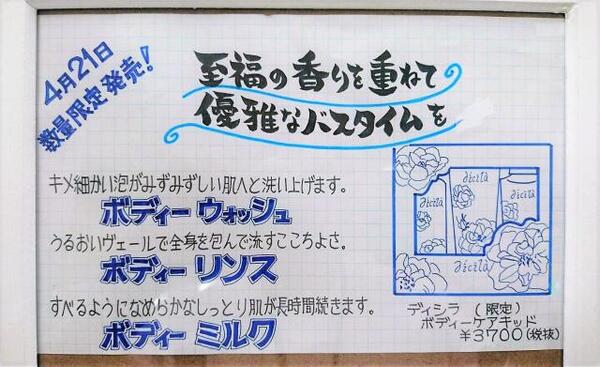 4月21日
数量限定発売!
至福の香りを重ねて
優雅なバスタイムを
キメ細かい泡がみずみずしい肌へと洗い上げます。
ボディー ウォッシュ
うるおいヴェールで全身を包んで流すここちよさ。
ボディー リンス
すべるようになめらかなしっとり肌が長時間続きます。
ボディー ミルク
dicila
dicila
dicila
ディシラ (限定)
ボディーケアキッド
¥3700(税抜)